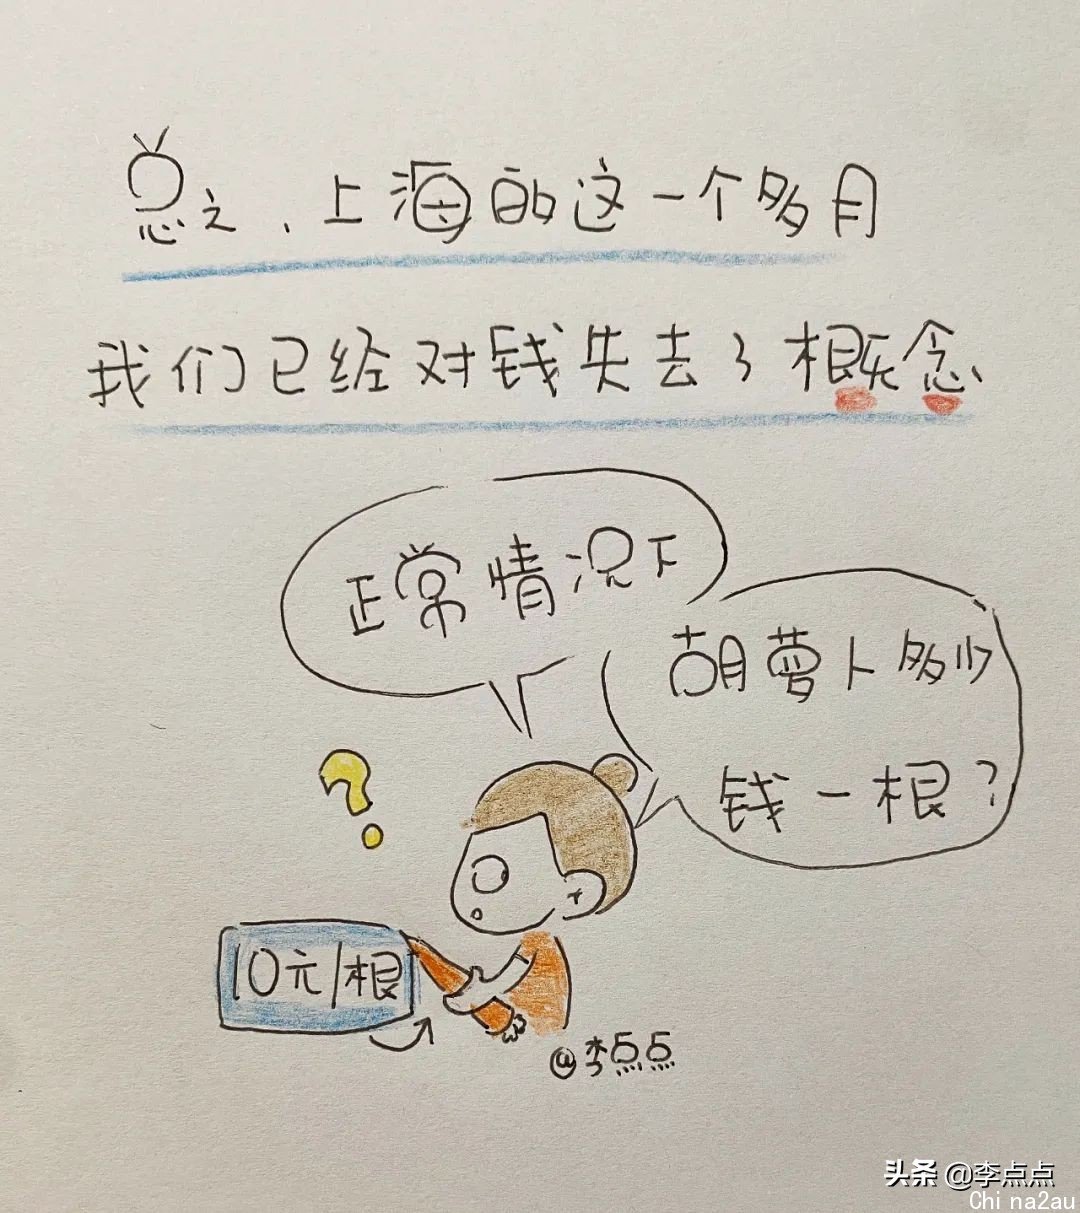 总之、上海的这一个多月
我们已经对钱失去了概念
正常情况下
胡萝卜多少
钱一根?
10元/根
@李点点
头条 @李点点
Chi na2au